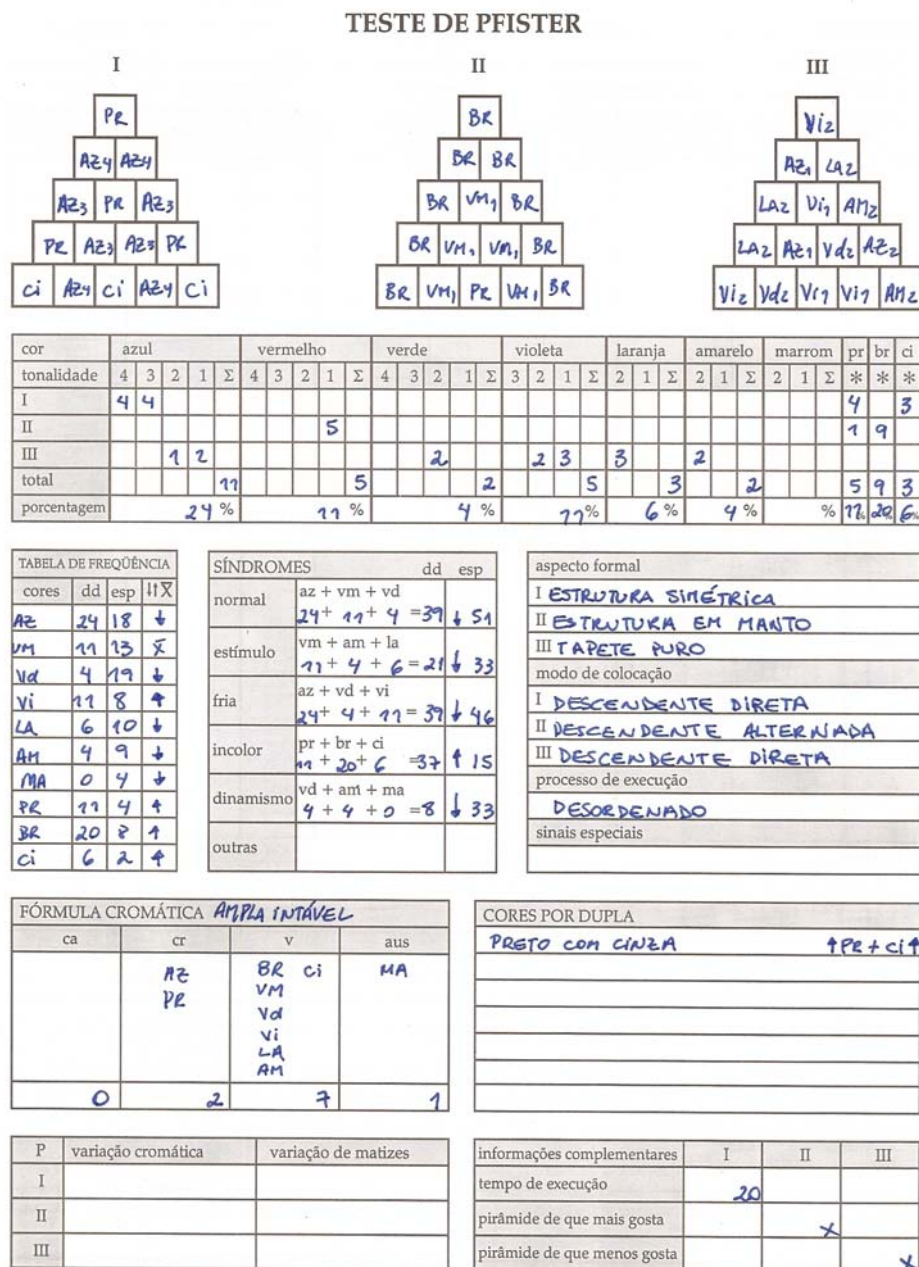 TESTE DE PFISTER
I II III
PR BR Vi2
AZ4 AZ4 BR BR AZ1 LA2
AZ3 PR AZ3 BR VM1 BR LA2 Vi1 AM2
PR AZ3 AZ3 PR BR VM1 VM1 BR LA2 AZ1 Vd2 AZ2
Ci AZ4 Ci AZ4 Ci BR VM1 PR VM1 BR Vi2 Vd2 Vi1 Vi1 AM2
cor azul vermelho verde violeta laranja amarelo marrom pr br ci
tonalidade 4 3 2 1 Σ 4 3 2 1 Σ 4 3 2 1 Σ 3 2 1 Σ 2 1 Σ 2 1 Σ 2 1 Σ * * *
I 4 4 4 3
II 5 1 9
III 1 2 2 2 3 3 2
total 11 5 2 5 3 2 5 9 3
porcentagem 24 % 11 % 4 % 11 % 6 % 4 % % 11% 20% 6%
TABELA DE FREQÜÊNCIA
cores dd esp ↓↑X̄
AZ 24 18 ↓
VM 11 13 X̄
Vd 4 19 ↓
Vi 11 8 ↑
LA 6 10 ↓
AM 4 9 ↓
MA 0 4 ↓
PR 11 4 ↑
BR 20 8 ↑
Ci 6 2 ↑
SÍNDROMES dd esp
normal az + vm + vd
24 + 11 + 4 = 39 ↓ 51
estímulo vm + am + la
11 + 4 + 6 = 21 ↓ 33
fria az + vd + vi
24 + 4 + 11 = 39 ↓ 46
incolor pr + br + ci
11 + 20 + 6 = 37 ↑ 15
dinamismo vd + am + ma
4 + 4 + 0 = 8 ↓ 33
outras
aspecto formal
I ESTRUTURA SIMÉTRICA
II ESTRUTURA EM MANTO
III TAPETE PURO
modo de colocação
I DESCENDENTE DIRETA
II DESCENDENTE ALTERNADA
III DESCENDENTE DIRETA
processo de execução
DESORDENADO
sinais especiais
FÓRMULA CROMÁTICA AMPLA INTÁVEL
ca cr v aus
AZ BR Ci MA
PR VM
Vd
Vi
LA
AM
0 2 7 1
CORES POR DUPLA
PRETO COM CINZA ↑PR + Ci↑
P variação cromática variação de matizes
I
II
III
informações complementares I II III
tempo de execução 20
pirâmide de que mais gosta X
pirâmide de que menos gosta X